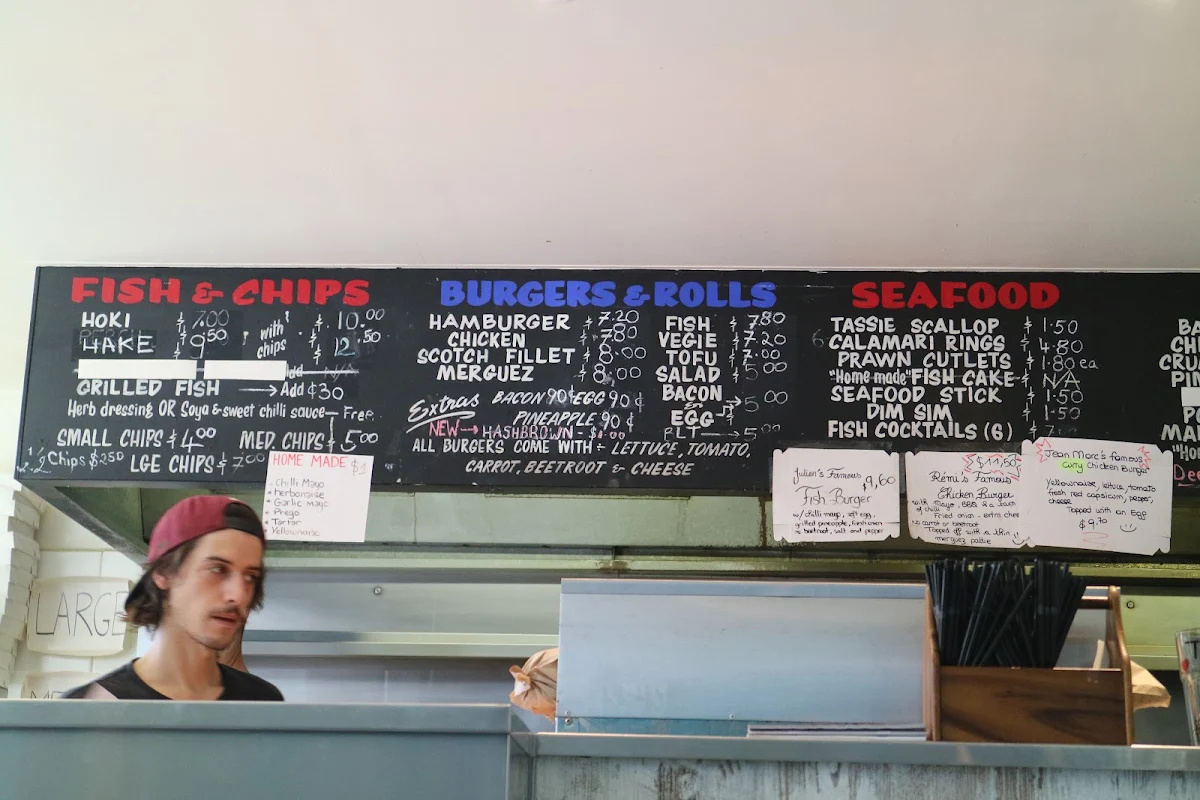 FISH & CHIPS
HOKI $7.00 with chips $10.00
HAKE $9.50 $12.50
Add N/A
GRILLED FISH → Add $30
Herb dressing OR Soya & sweet chilli sauce - Free
SMALL CHIPS $4.00 MED. CHIPS $5.00
Chips $2.50 LGE CHIPS $7.00
HOME MADE $1
• Chilli Mayo
• herbonaise
• Garlic Mayo
• Prego
• Tartar
• Yellownaise
BURGERS & ROLLS
HAMBURGER $7.20
CHICKEN $7.80
SCOTCH FILLET $8.00
MERGUEZ $8.00
FISH $7.80
VEGIE $7.20
TOFU $7.00
SALAD $5.00
BACON
EGG → $5.00
PLT → $5.00
Extras BACON 90¢ EGG 90¢
PINEAPPLE 90¢
NEW → HASHBROWN -
ALL BURGERS COME WITH - LETTUCE, TOMATO,
CARROT, BEETROOT & CHEESE
SEAFOOD
TASSIE SCALLOP $1.50
6 CALAMARI RINGS $4.80
PRAWN CUTLETS $1.80 ea
"Home made" FISH CAKE - N/A
SEAFOOD STICK $1.50
DIM SIM $1.50
FISH COCKTAILS (6)
Julien's Famous $9,60
Fish Burger
w/ chilli mayo, soft egg,
grilled pineapple, fresh onion
no beetroot, salt and pepper
$11,50
Rémi's Famous
Chicken Burger
with Mayo, BBQ & a
of chilli
Fried onion - extra chee
no carrot or beetroot
Topped off with a thin
merguez pattie
Jean Marc's famous
curry Chicken Burger
Yellownaise, lettuce, tomato
fresh red capsicum, pepper,
cheese
Topped with an Egg
$9.70
LARGE